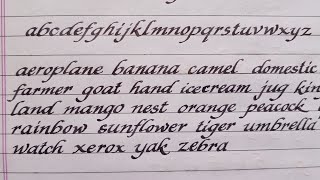 abcdefghijklmnopqrstuvwxyz
aeroplane banana camel domestic
farmer goat hand icecream jug king
land mango nest orange peacock
rainbow sunflower tiger umbrella
watch xerox yak zebra